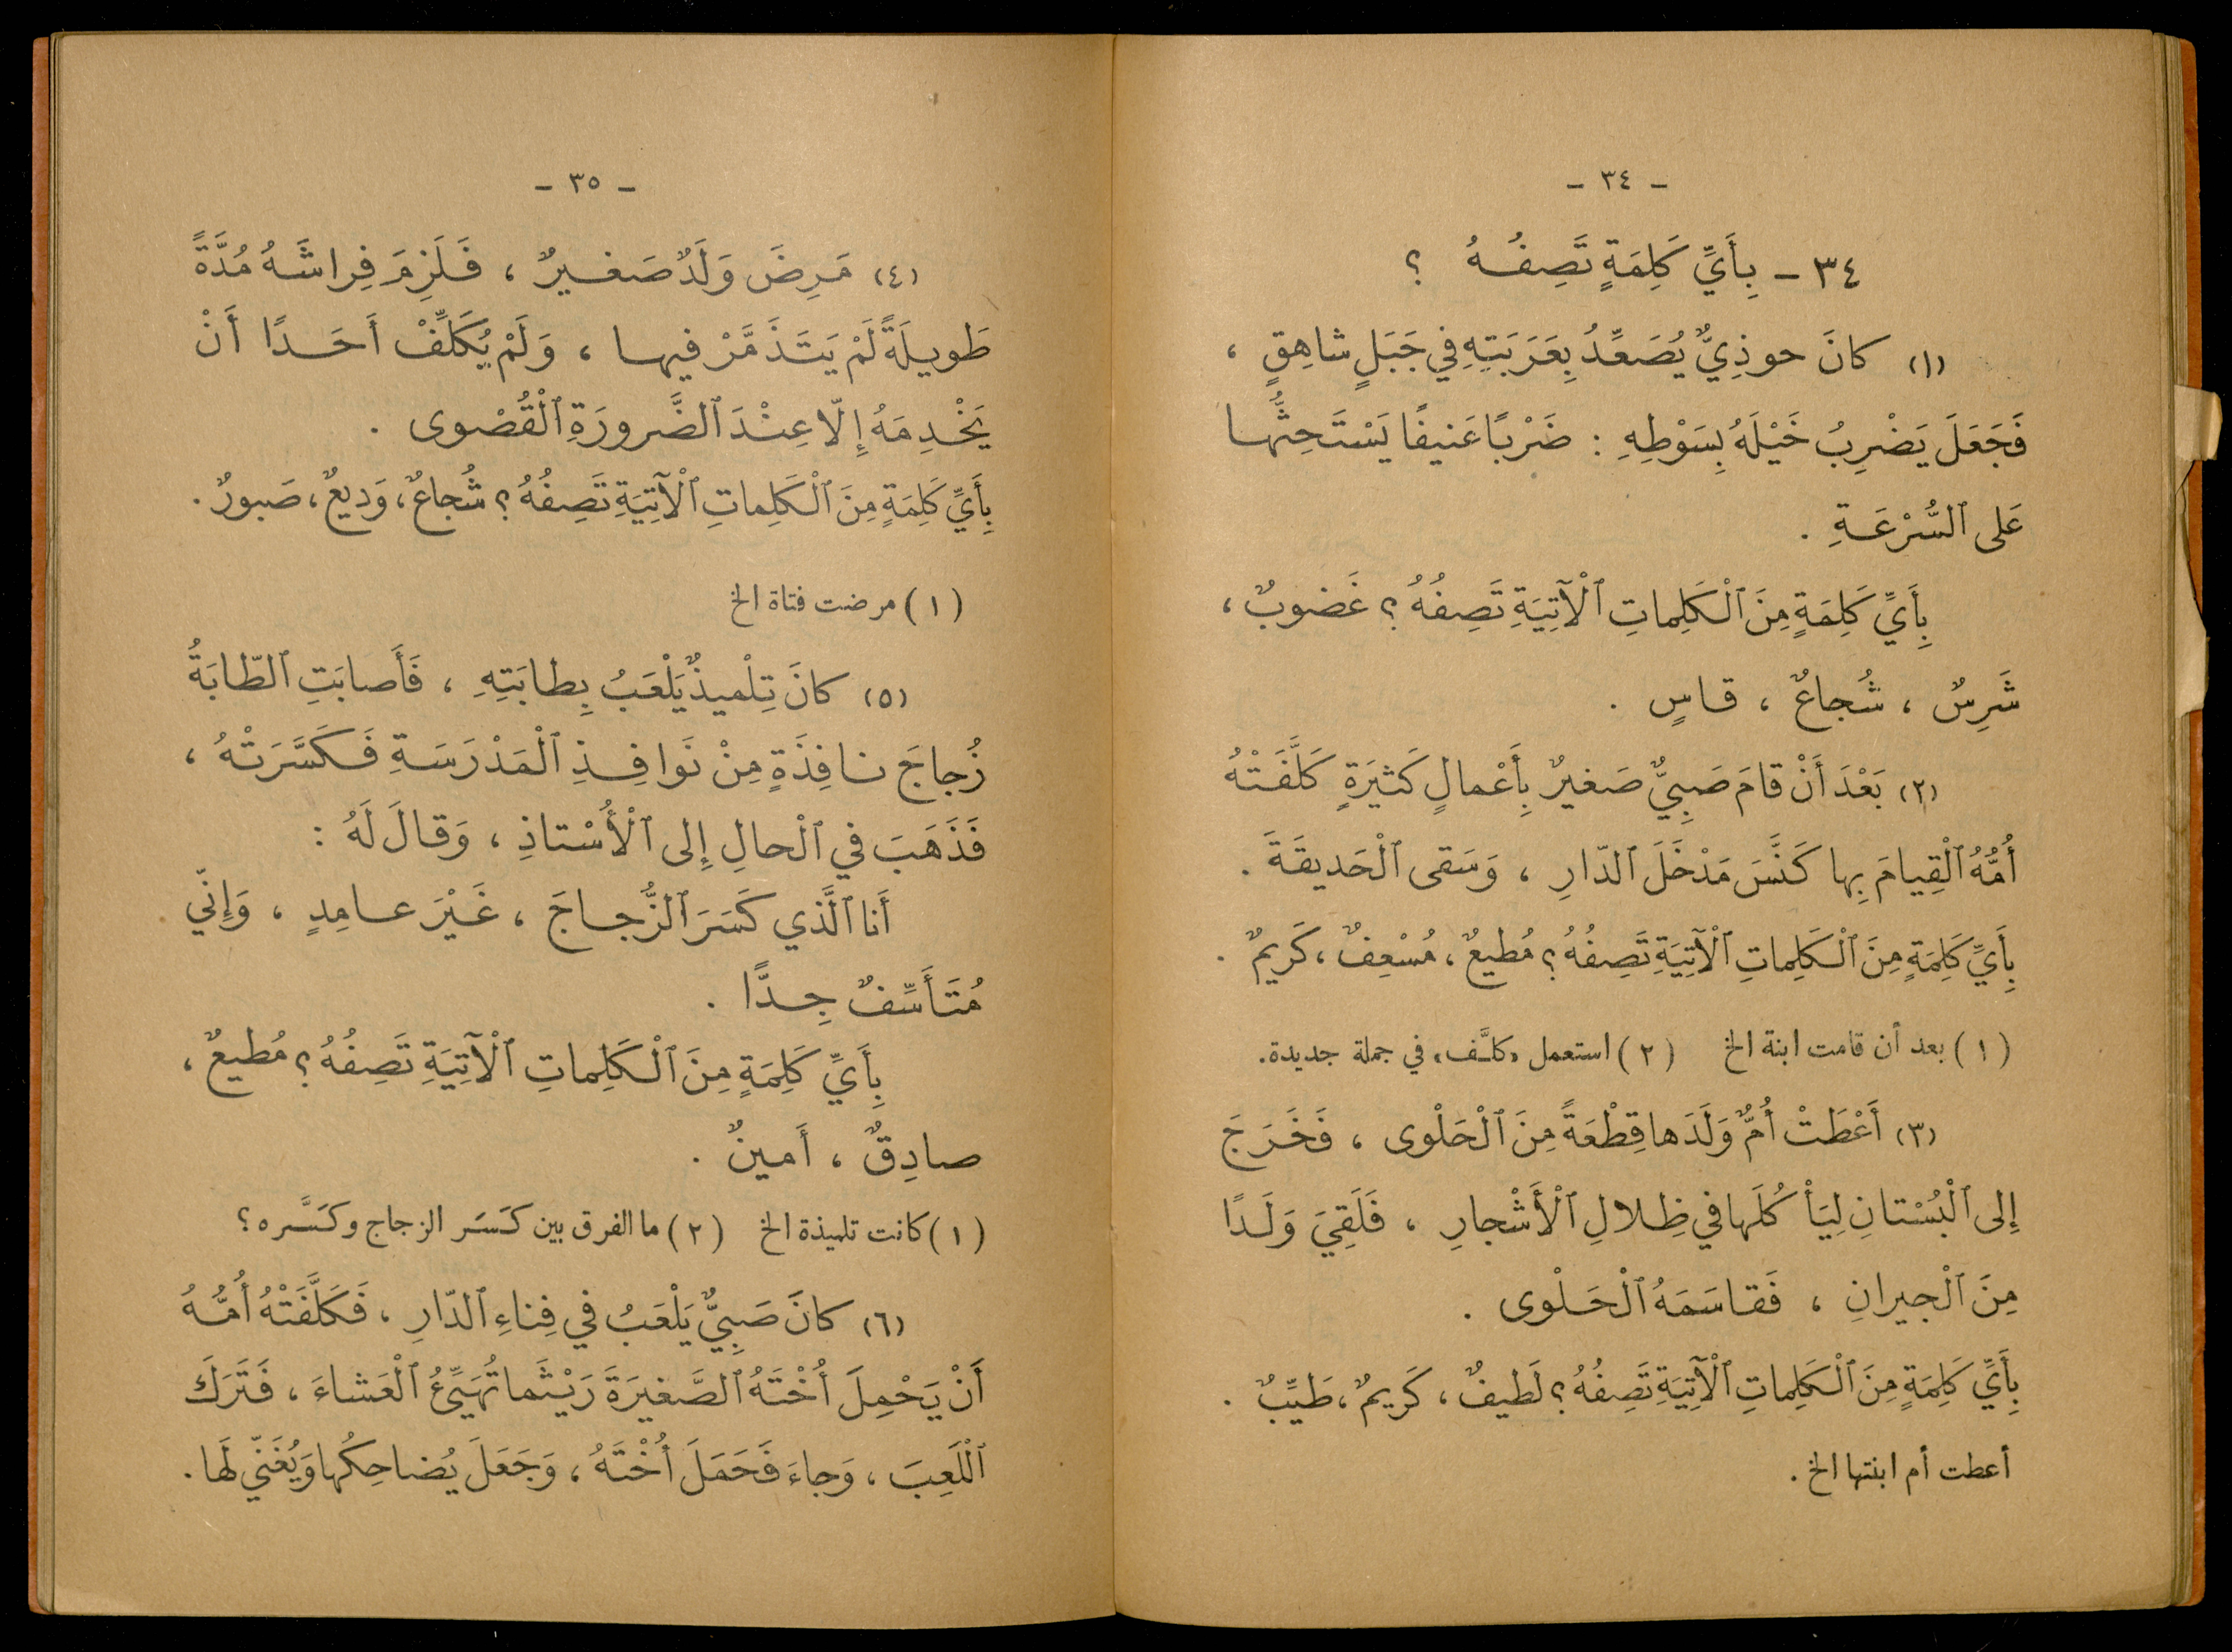 - ٣٤ -
٣٤ - بِأَيِّ كَلِمَةٍ تَصِفُهُ ؟
(١) كانَ حوذِيٌّ يُصَعِّدُ بِعَرَبَتِهِ في جَبَلٍ شاهِقٍ ،
فَجَعَلَ يَضْرِبُ خَيْلَهُ بِسَوْطِهِ : ضَرْبًا عَنيفًا يَسْتَحِثُّها
عَلى ٱلسُّرْعَةِ .
بِأَيِّ كَلِمَةٍ مِنَ ٱلْكَلِماتِ ٱلْآتِيَةِ تَصِفُهُ ؟ غَضوبٌ ،
شَرِسٌ ، شُجاعٌ ، قاسٍ .
(٢) بَعْدَ أَنْ قامَ صَبِيٌّ صَغيرٌ بِأَعْمالٍ كَثيرَةٍ كَلَّفَتْهُ
أُمُّهُ ٱلْقِيامَ بِها كَنَّسَ مَدْخَلَ ٱلدّارِ ، وَسَقى ٱلْحَديقَةَ .
بِأَيِّ كَلِمَةٍ مِنَ ٱلْكَلِماتِ ٱلْآتِيَةِ تَصِفُهُ ؟ مُطيعٌ ، مُسْعِفٌ ، كَريمٌ .
(١) بعد أن قامت ابنة الخ (٢) استعمل «كلَّف» في جملة جديدة .
(٣) أَعْطَتْ أُمٌّ وَلَدَها قِطْعَةً مِنَ ٱلْحَلْوى ، فَخَرَجَ
إِلى ٱلْبُسْتانِ لِيَأْكُلَها في ظِلالِ ٱلْأَشْجارِ ، فَلَقِيَ وَلَدًا
مِنَ ٱلْجيرانِ ، فَقاسَمَهُ ٱلْحَلْوى .
بِأَيِّ كَلِمَةٍ مِنَ ٱلْكَلِماتِ ٱلْآتِيَةِ تَصِفُهُ ؟ لَطيفٌ ، كَريمٌ ، طَيِّبٌ .
أعطت أم ابنتها الخ .
- ٣٥ -
(٤) مَرِضَ وَلَدٌ صَغيرٌ ، فَلَزِمَ فِراشَهُ مُدَّةً
طَويلَةً لَمْ يَتَذَمَّرْ فيها ، وَلَمْ يُكَلِّفْ أَحَدًا أَنْ
يَخْدِمَهُ إِلّا عِنْدَ ٱلضَّرورَةِ ٱلْقُصْوى .
بِأَيِّ كَلِمَةٍ مِنَ ٱلْكَلِماتِ ٱلْآتِيَةِ تَصِفُهُ ؟ شُجاعٌ ، وَديعٌ ، صَبورٌ .
(١) مرضت فتاة الخ
(٥) كانَ تِلْميذٌ يَلْعَبُ بِطابَتِهِ ، فَأَصابَتِ ٱلطّابَةُ
زُجاجَ نافِذَةٍ مِنْ نَوافِذِ ٱلْمَدْرَسَةِ فَكَسَّرَتْهُ ،
فَذَهَبَ في ٱلْحالِ إِلى ٱلْأُسْتاذِ ، وَقالَ لَهُ :
أَنا ٱلَّذي كَسَرَ ٱلزُّجاجَ ، غَيْرَ عامِدٍ ، وَإِنّي
مُتَأَسِّفٌ جِدًّا .
بِأَيِّ كَلِمَةٍ مِنَ ٱلْكَلِماتِ ٱلْآتِيَةِ تَصِفُهُ ؟ مُطيعٌ ،
صادِقٌ ، أَمينٌ .
(١) كانت تلميذة الخ (٢) ما الفرق بين كَسَر الزجاج وكَسَّره ؟
(٦) كانَ صَبِيٌّ يَلْعَبُ في فِناءِ ٱلدّارِ ، فَكَلَّفَتْهُ أُمُّهُ
أَنْ يَحْمِلَ أُخْتَهُ ٱلصَّغيرَةَ رَيْثَما تُهَيِّئُ ٱلْعَشاءَ ، فَتَرَكَ
ٱللَّعِبَ ، وَجاءَ فَحَمَلَ أُخْتَهُ ، وَجَعَلَ يُضاحِكُها وَيُغَنّي لَها .